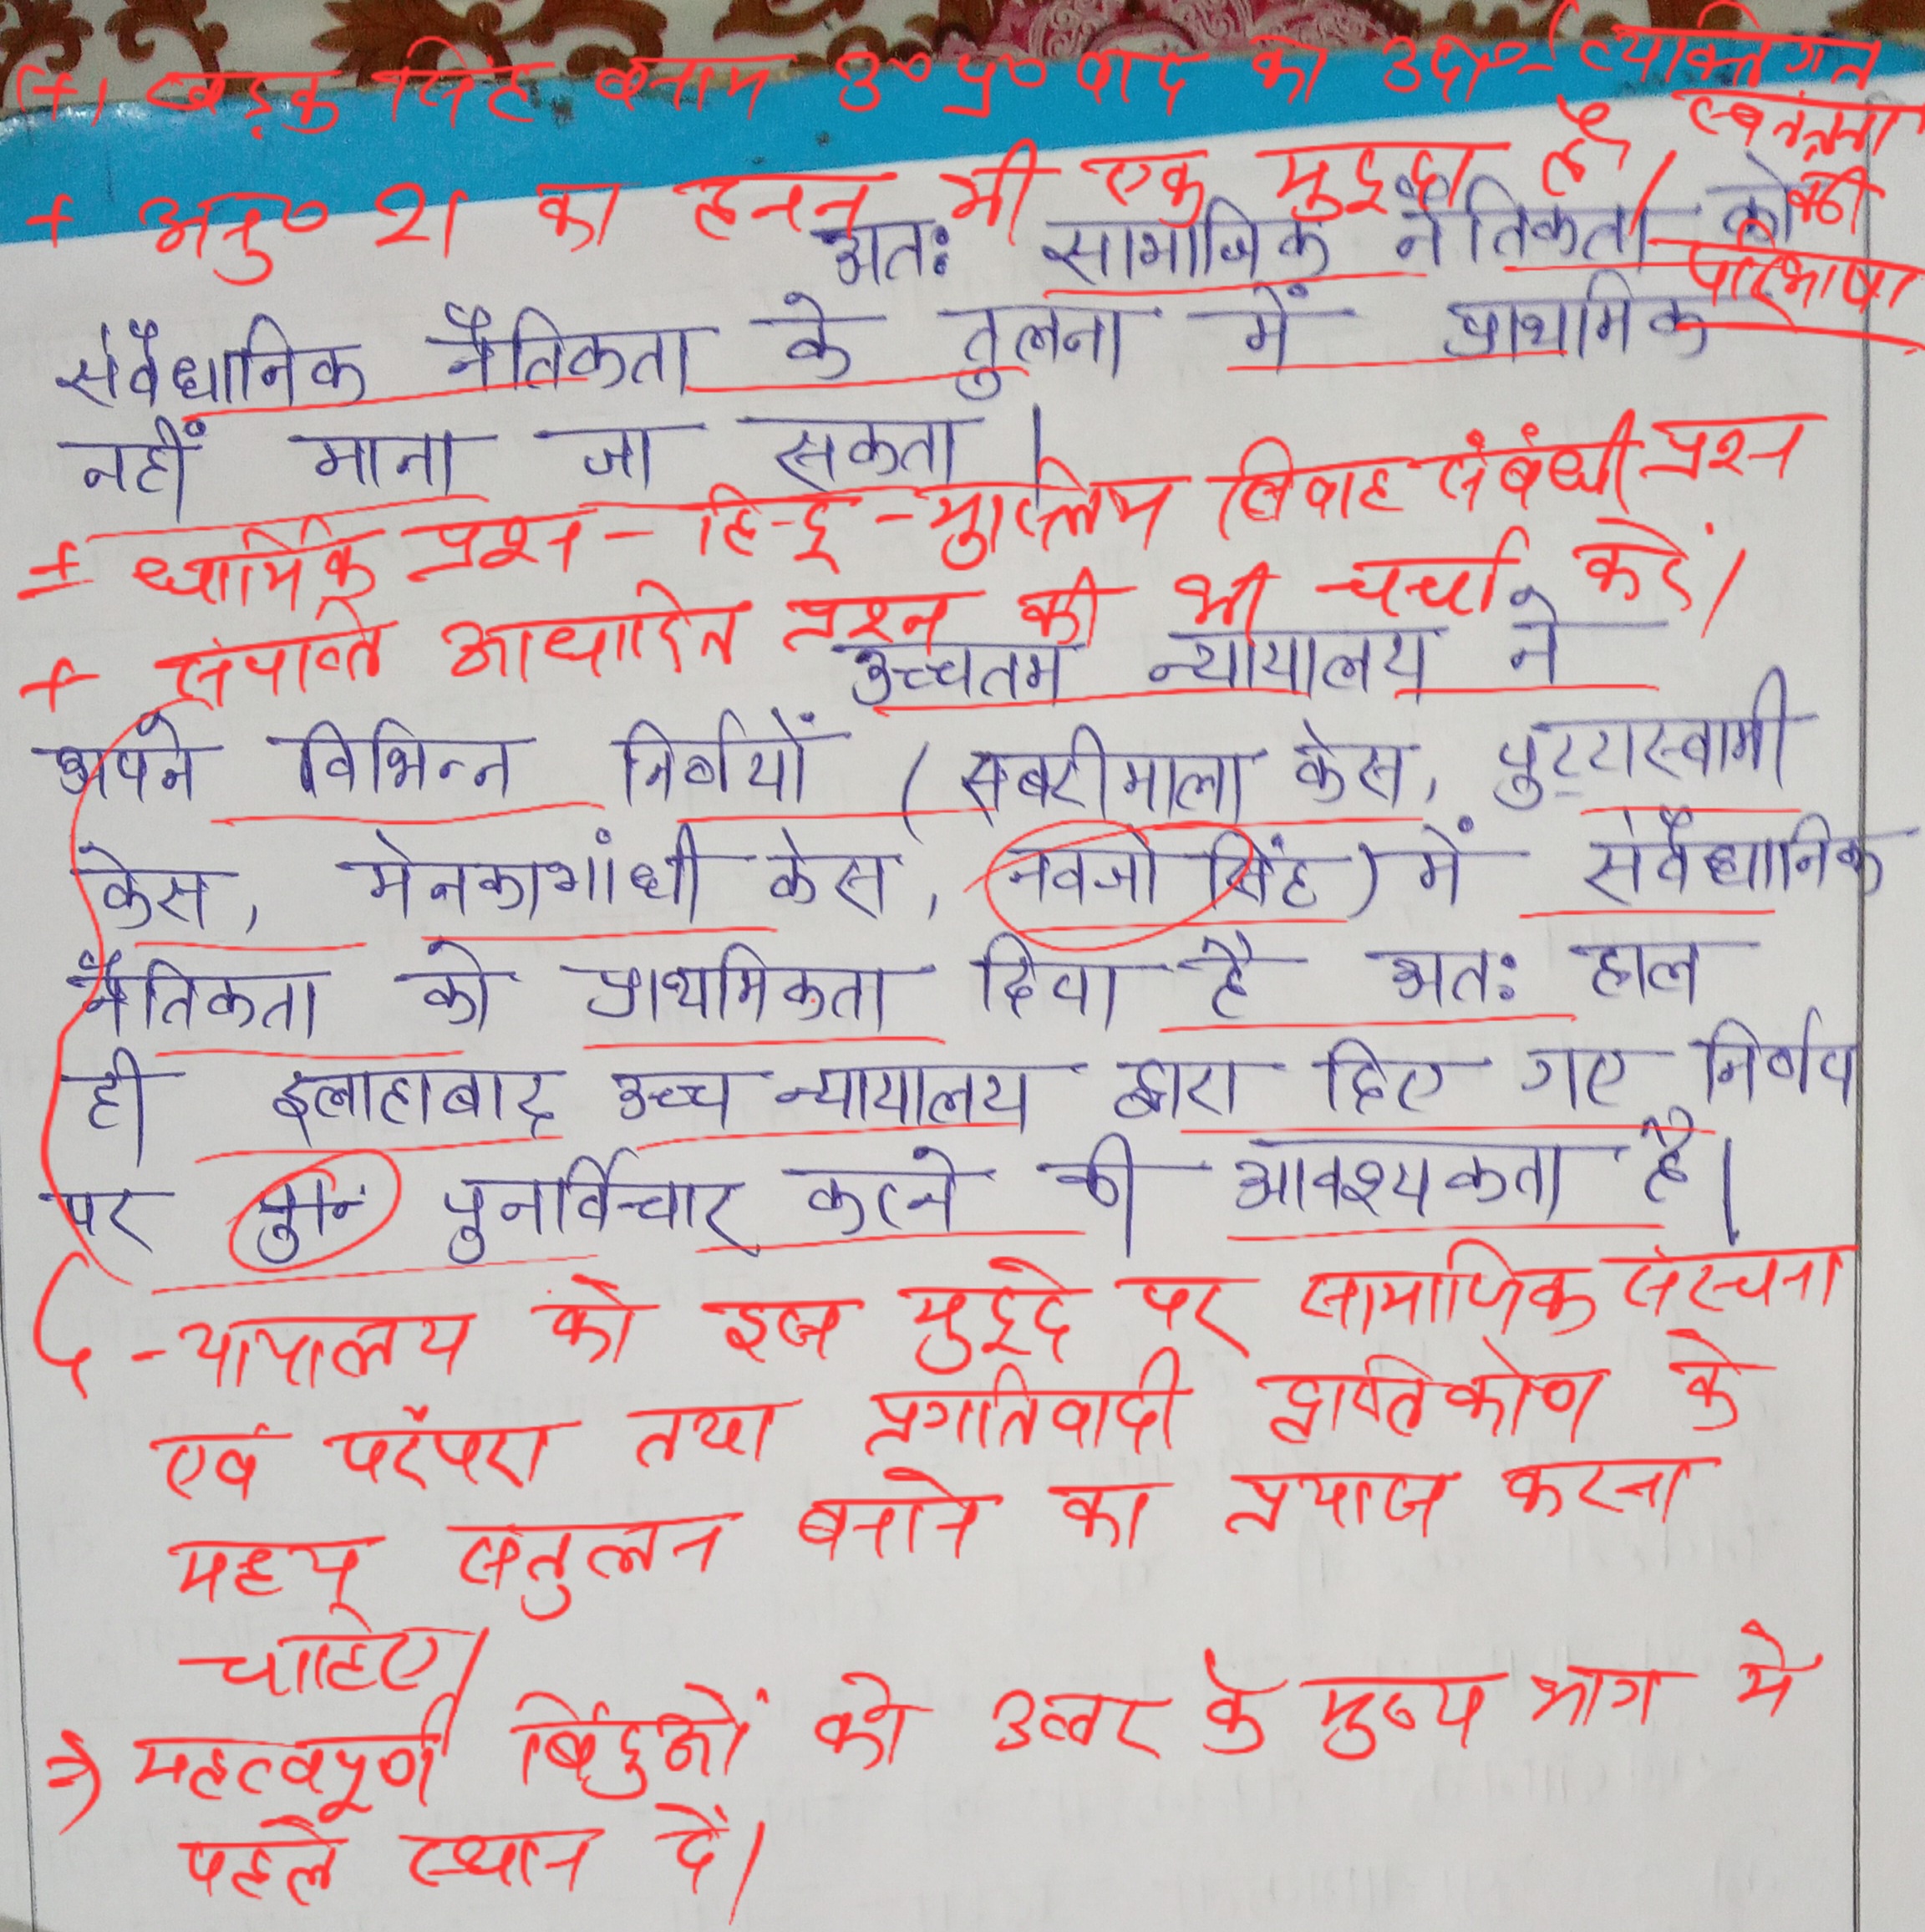 (+) खड़क सिंह बनाम उ०प्र० वाद का उदा०-(व्यक्तिगत
स्वतंत्रता
की
परिभाषा
+ अनु० 21 का हनन भी एक मुद्दा है।
अतः सामाजिक नैतिकता को
संवैधानिक नैतिकता के तुलना में प्राथमिक
नहीं माना जा सकता।
+ धार्मिक प्रश्न - हिन्दू-मुस्लिम विवाह संबंधी प्रश्न
+ संपत्ति आधारित प्रश्न की भी चर्चा करें।
उच्चतम न्यायालय ने
अपने विभिन्न निर्णयों (सबरीमाला केस, पुट्टास्वामी
केस, मेनकागांधी केस, नवजो सिंह) में संवैधानिक
नैतिकता को प्राथमिकता दिया है अतः हाल
ही इलाहाबाद उच्च न्यायालय द्वारा दिए गए निर्णय
पर पुनर्विचार करने की आवश्यकता है।
न्यायालय को इस मुद्दे पर सामाजिक संरचना
एवं परंपरा तथा प्रगतिवादी दृष्टिकोण के
मध्य संतुलन बनाने का प्रयास करना
चाहिए।
→ महत्वपूर्ण बिंदुओं को उत्तर के मुख्य भाग में
पहले स्थान दें।